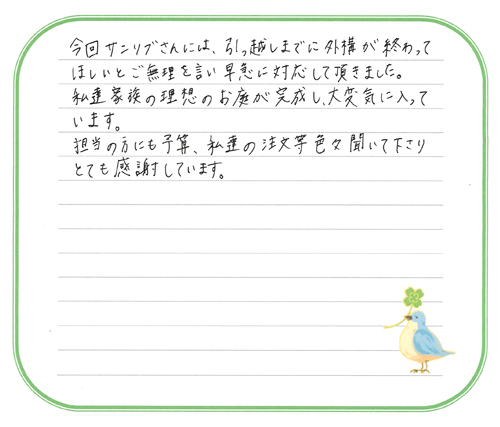 今回サンリブさんには、引っ越しまでに外構が終わって
ほしいとご無理を言い早急に対応して頂きました。
私達家族の理想のお庭が完成し、大変気に入って
います。
担当の方にも予算、私達の注文等色々聞いて下さり
とても感謝しています。